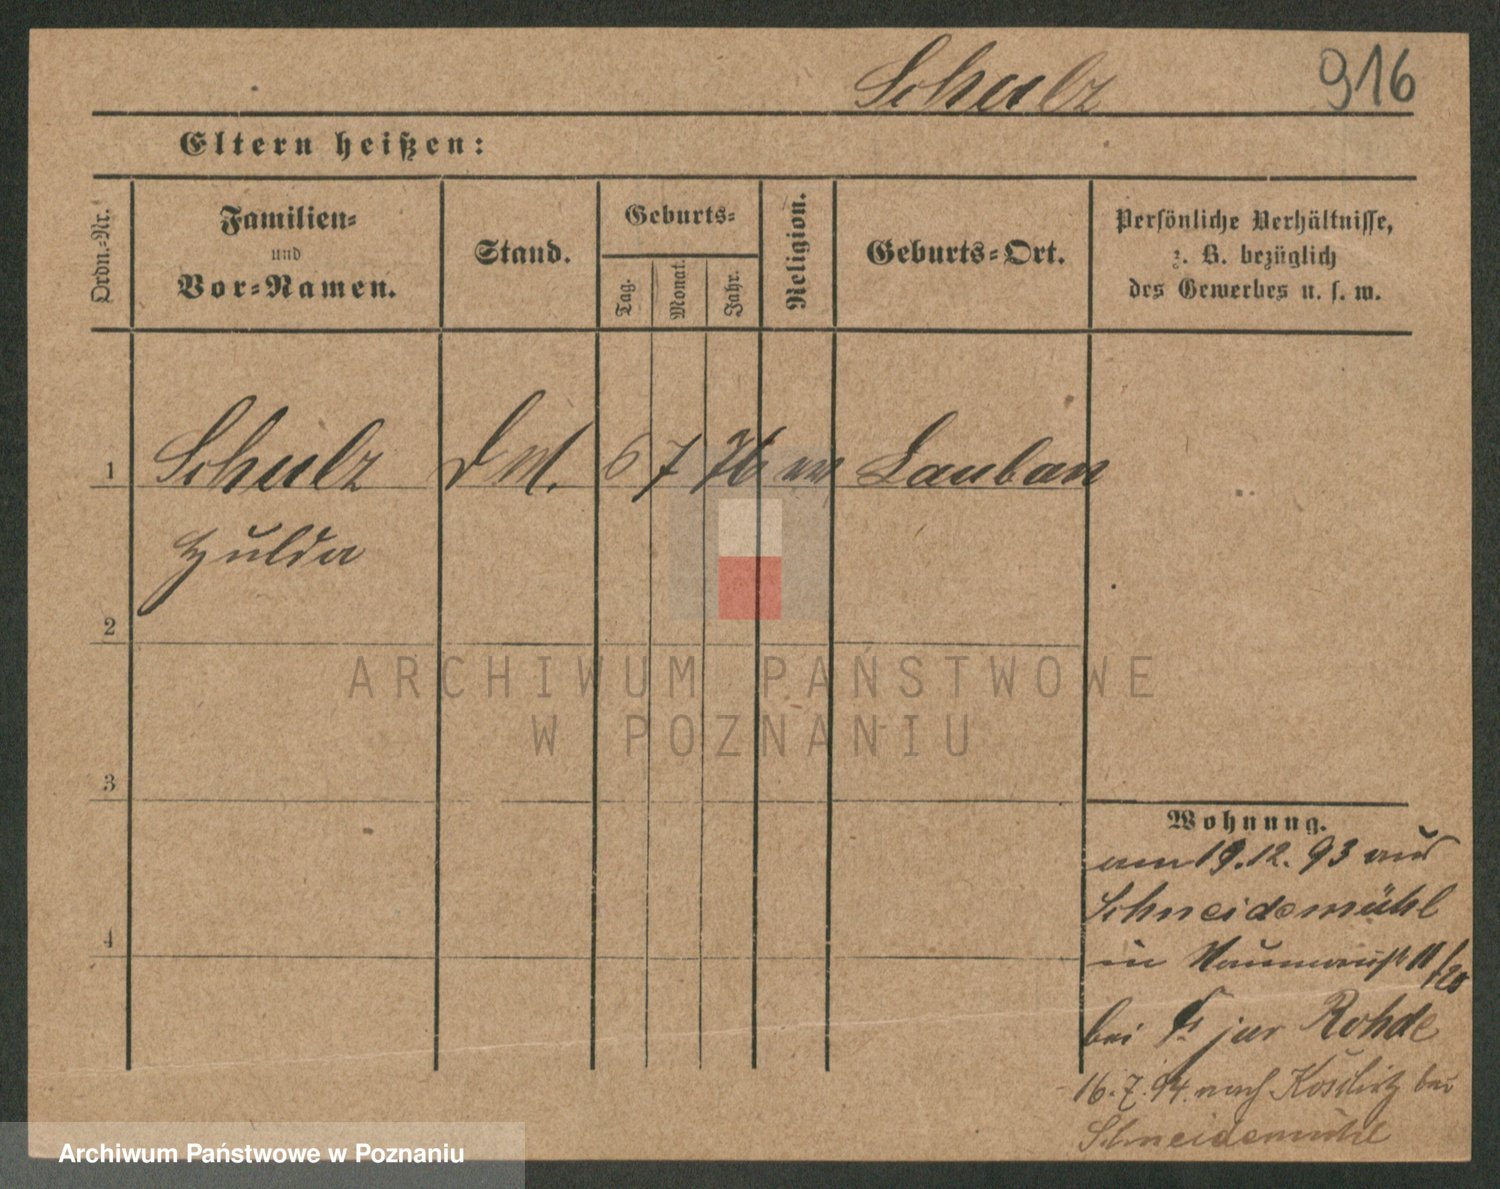 Schulz 916
Eltern heißen:
Ordn.-Nr.
Familien-
und
Vor-Namen.
Stand.
Geburts-
Tag.
Monat.
Jahr.
Religion.
Geburts-Ort.
Persönliche Verhältnisse,
z. B. bezüglich
des Gewerbes u. s. w.
1 Schulz D M. 6 7 76 Lauban
Hulda
2
3
4
Wohnung.
am 19.12.93 aus
Schneidemühl
in 11/20
bei jur Rohde
16.7.94. nach bei
Schneidemühl
ARCHIWUM PAŃSTWOWE
W POZNANIU
Archiwum Państwowe w Poznaniu